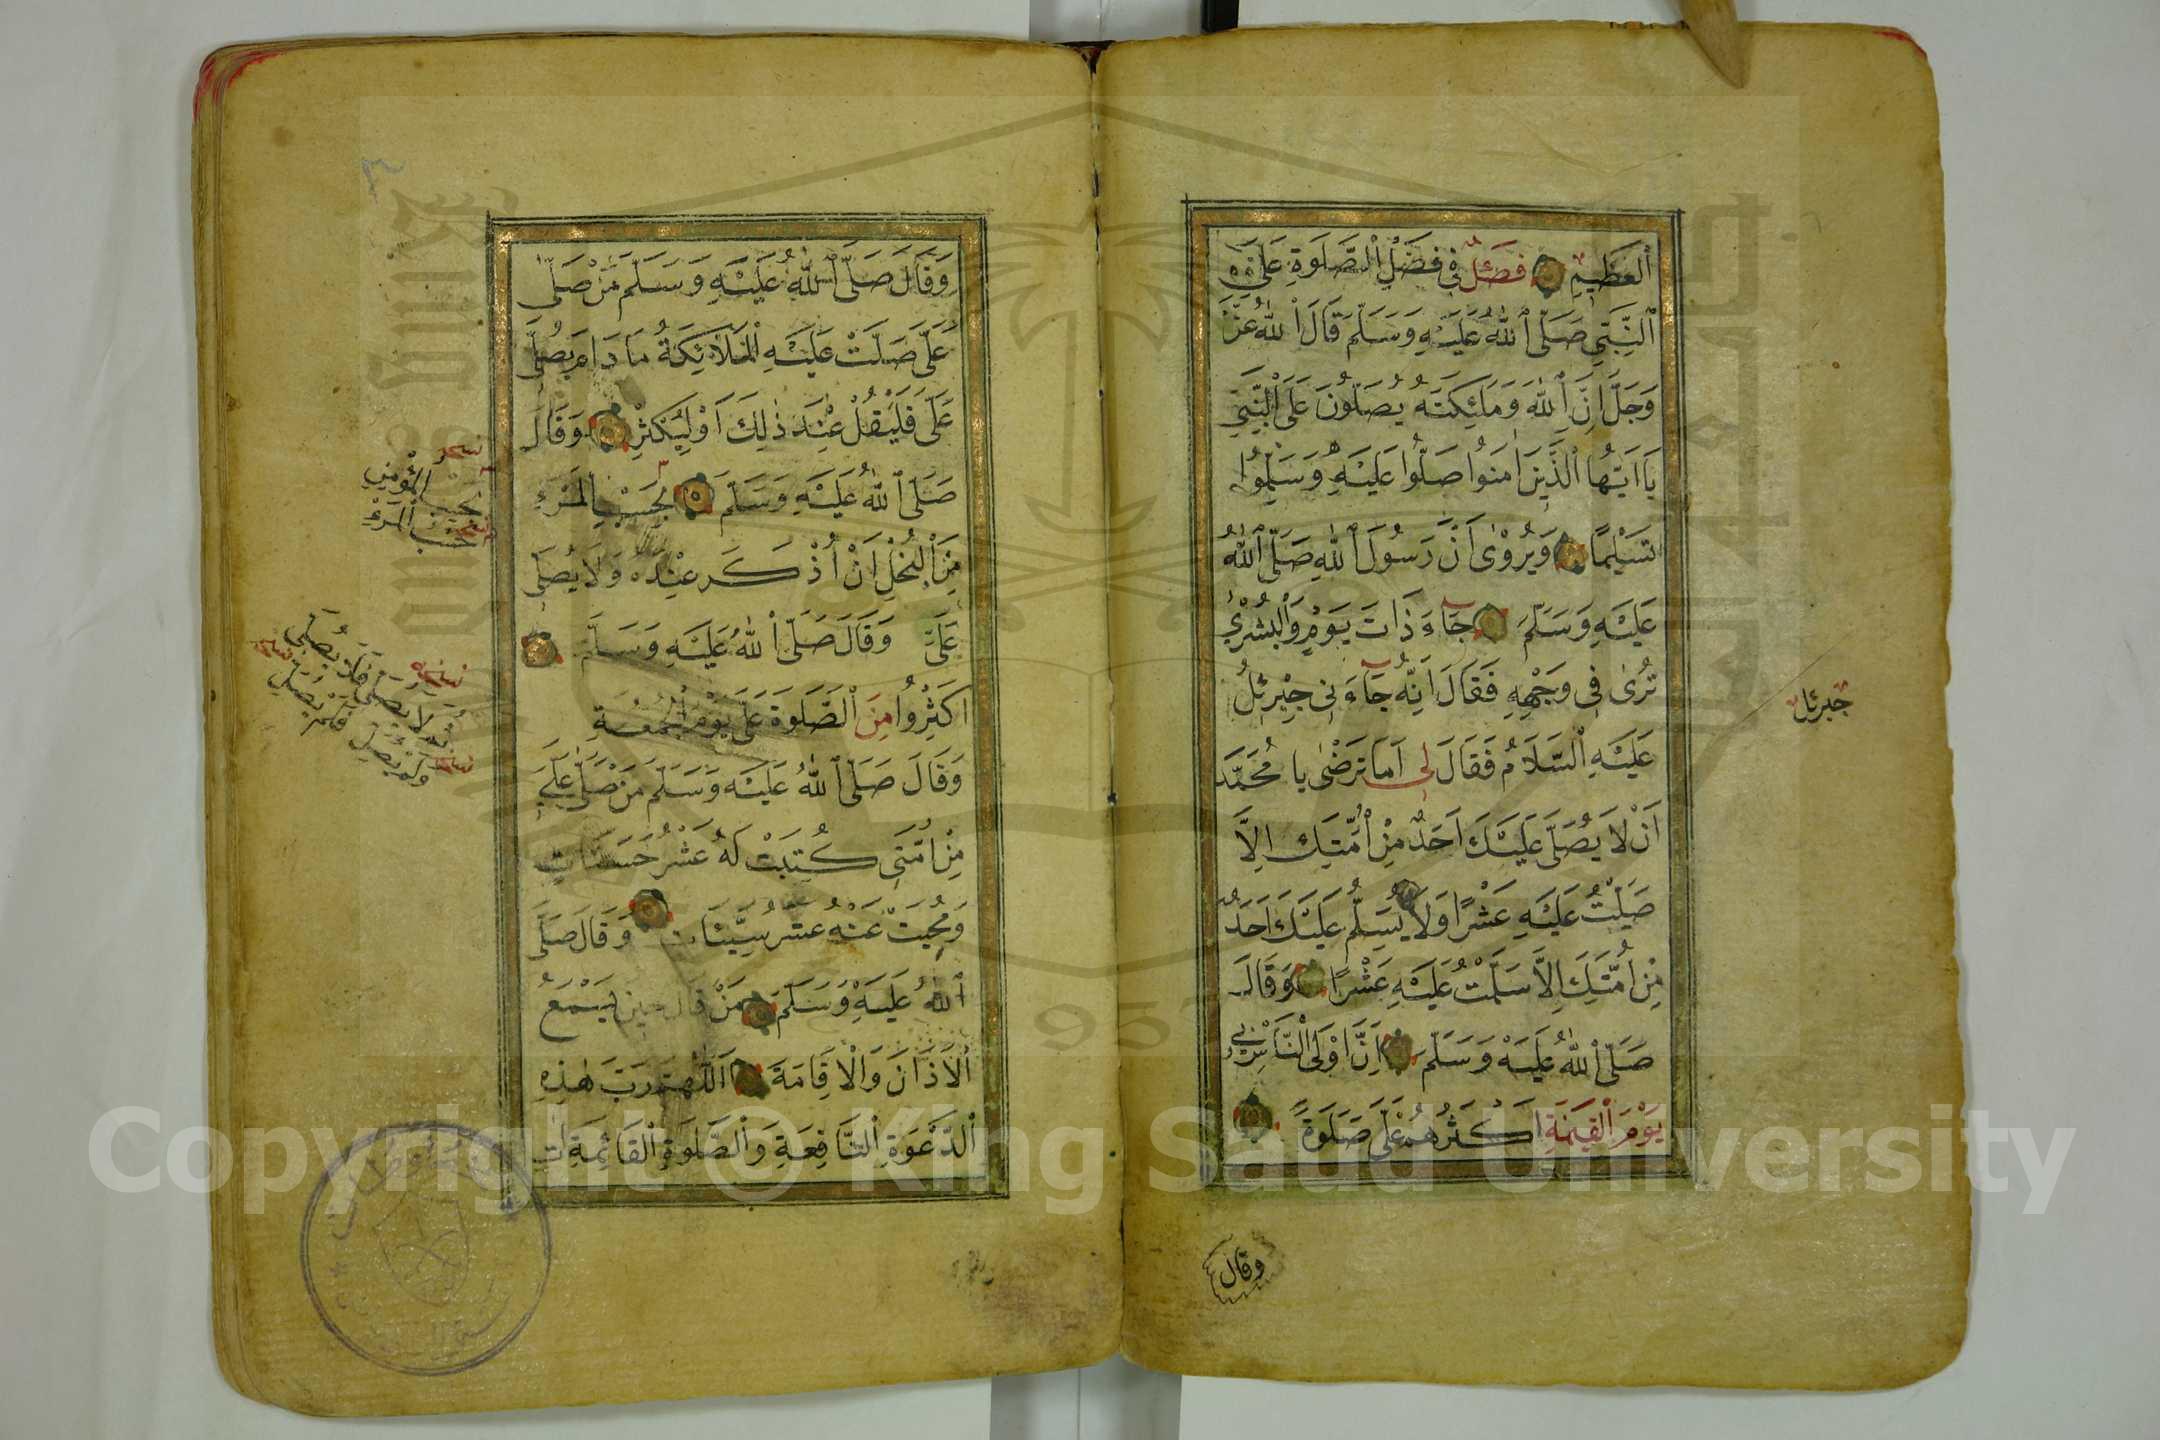 اَلْعَظِيمِ فَصْلٌ فِي فَضْلِ الصَّلٰوةِ عَلَى
النَّبِيِّ صَلَّى اللّٰهُ عَلَيْهِ وَسَلَّمَ قَالَ اللّٰهُ عَزَّ
وَجَلَّ اِنَّ اللّٰهَ وَمَلٰئِكَتَهُ يُصَلُّونَ عَلَى النَّبِيِّ
يَا اَيُّهَا الَّذِينَ اٰمَنُوا صَلُّوا عَلَيْهِ وَسَلِّمُوا
تَسْلِيمًا وَيُرْوٰى اَنَّ رَسُولَ اللّٰهِ صَلَّى اللّٰهُ
عَلَيْهِ وَسَلَّمَ جَاءَ ذَاتَ يَوْمٍ وَالْبُشْرٰى
تُرٰى فِي وَجْهِهِ فَقَالَ اِنَّهُ جَاءَنِي جِبْرِئِلُ
عَلَيْهِ السَّلَامُ فَقَالَ لِي اَمَا تَرْضٰى يَا مُحَمَّدُ
اَنْ لَا يُصَلِّىَ عَلَيْكَ اَحَدٌ مِنْ اُمَّتِكَ اِلَّا
صَلَّيْتُ عَلَيْهِ عَشْرًا وَلَا يُسَلِّمُ عَلَيْكَ اَحَدٌ
مِنْ اُمَّتِكَ اِلَّا سَلَّمْتُ عَلَيْهِ عَشْرًا وَقَالَ
صَلَّى اللّٰهُ عَلَيْهِ وَسَلَّمَ اِنَّ اَوْلَى النَّاسِ بِي
يَوْمَ الْقِيٰمَةِ اَكْثَرُهُمْ عَلَيَّ صَلٰوةً
جبرئل
وقال
وَقَالَ صَلَّى اللّٰهُ عَلَيْهِ وَسَلَّمَ مَنْ صَلّٰى
عَلَيَّ صَلَّتْ عَلَيْهِ الْمَلَائِكَةُ مَا دَامَ يُصَلِّى
عَلَيَّ فَلْيُقِلْ عِنْدَ ذٰلِكَ اَوْ لِيُكْثِرْ وَقَالَ
صَلَّى اللّٰهُ عَلَيْهِ وَسَلَّمَ بِحَسْبِ الْمَرْءِ
مِنَ الْبُخْلِ اَنْ اُذْكَرَ عِنْدَهُ وَلَا يُصَلِّى
عَلَيَّ وَقَالَ صَلَّى اللّٰهُ عَلَيْهِ وَسَلَّمَ
اَكْثِرُوا مِنَ الصَّلٰوةِ عَلَيَّ يَوْمَ الْجُمُعَةِ
وَقَالَ صَلَّى اللّٰهُ عَلَيْهِ وَسَلَّمَ مَنْ صَلّٰى عَلَيَّ
مِنْ اُمَّتِي كُتِبَتْ لَهُ عَشْرُ حَسَنَاتٍ
وَمُحِيَتْ عَنْهُ عَشْرُ سَيِّئَاتٍ وَقَالَ صَلَّى
اللّٰهُ عَلَيْهِ وَسَلَّمَ مَنْ قَالَ حِينَ يَسْمَعُ
الْاَذَانَ وَالْاِقَامَةَ اَللّٰهُمَّ رَبَّ هٰذِهِ
الدَّعْوَةِ النَّافِعَةِ وَالصَّلٰوةِ الْقَائِمَةِ اٰتِ
نسخه
المؤمن
بحسب
حسب المرء
فلا يصلى
نسخه
ثم لا يصلى
فلم يصل
ولم يصل
نسخه
King Saud
1957
Copyright © King Saud University